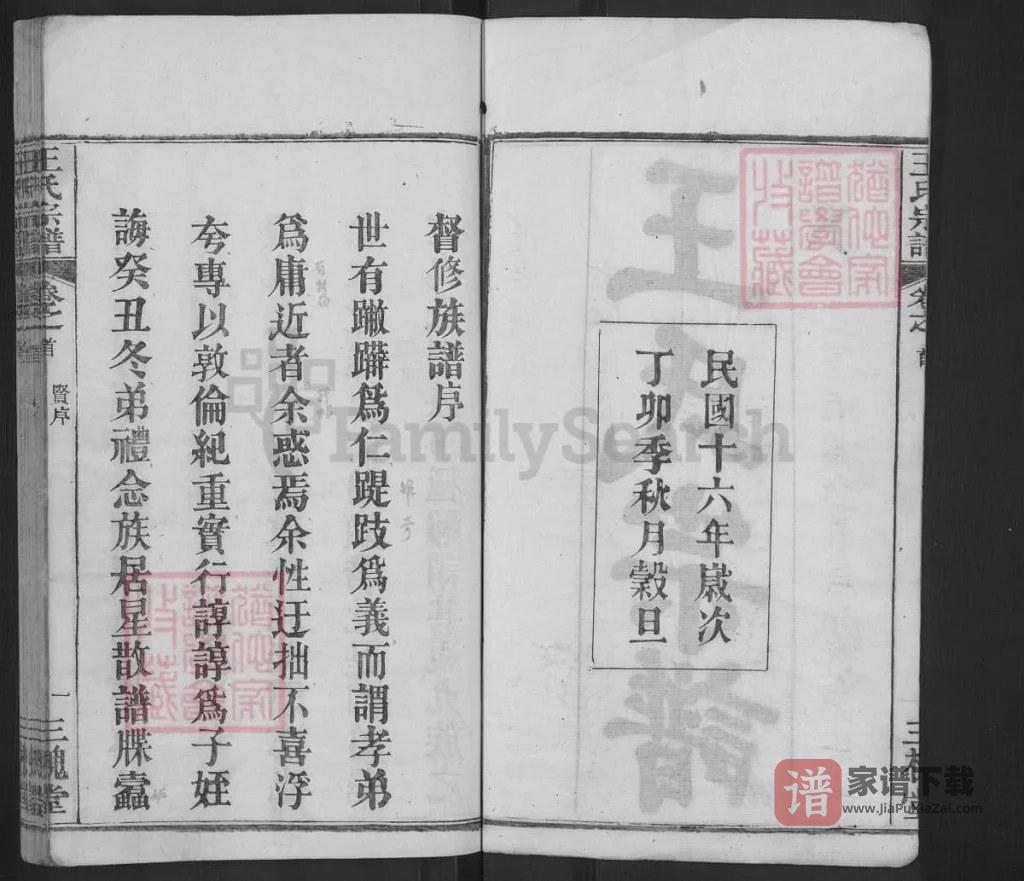 王氏宗譜
卷之首
三槐堂
民國十六年歲次
丁卯季秋月穀旦
督修族譜序
世有蹩躠爲仁踶跂爲義而謂孝弟
爲庸近者余惑焉余性迂拙不喜浮
夸專以敦倫紀重實行諄諄爲子姪
誨癸丑冬弟禮念族居星散譜牒蠹
王氏宗譜
卷之首
賢序
一
三槐堂
FamilySearch
譜
家谱下载
www.JiaPuXiaZai.com